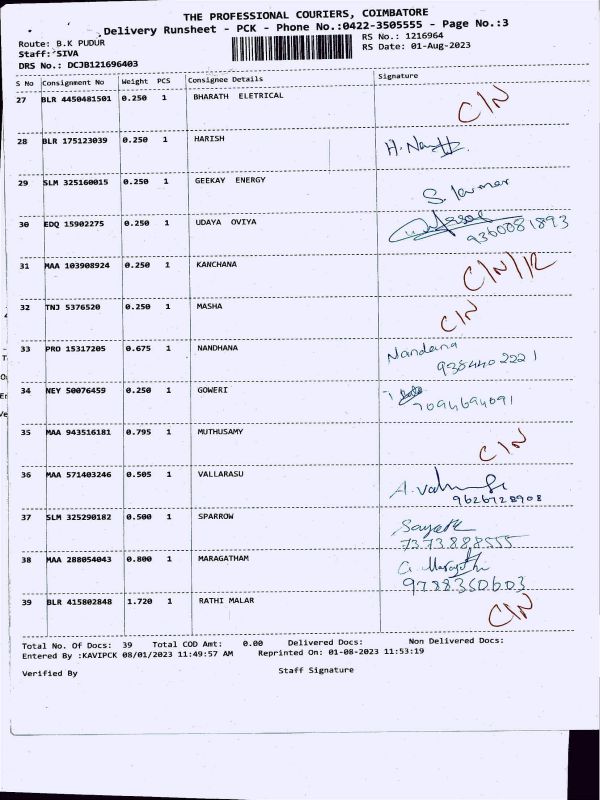 THE PROFESSIONAL COURIERS, COIMBATORE
Delivery Runsheet - PCK - Phone No.:0422-3505555 - Page No.:3
Route: B.K PUDUR RS No.: 1216964
Staff: SIVA RS Date: 01-Aug-2023
DRS No.: DCJB121696403
S No Consignment No Weight PCS Consignee Details Signature
27 BLR 4450481501 0.250 1 BHARATH ELETRICAL C/N
28 BLR 175123039 0.250 1 HARISH H.
29 SLM 325160015 0.250 1 GEEKAY ENERGY S. Kumar
30 EDQ 15902275 0.250 1 UDAYA OVIYA 9360081893
31 MAA 103908924 0.250 1 KANCHANA C/N/R
32 TNJ 5376520 0.250 1 MASHA C/N
33 PRO 15317205 0.675 1 NANDHANA Nandana
9384402221
34 NEY 50076459 0.250 1 GOWERI
7094694091
35 MAA 943516181 0.795 1 MUTHUSAMY C/N
36 MAA 571403246 0.505 1 VALLARASU A.
9626728908
37 SLM 325290182 0.500 1 SPARROW
7373888555
38 MAA 288054043 0.800 1 MARAGATHAM G.
9788350603
39 BLR 415802848 1.720 1 RATHI MALAR C/N
Total No. Of Docs: 39 Total COD Amt: 0.00 Delivered Docs: Non Delivered Docs:
Entered By :KAVIPCK 08/01/2023 11:49:57 AM Reprinted On: 01-08-2023 11:53:19
Verified By Staff Signature